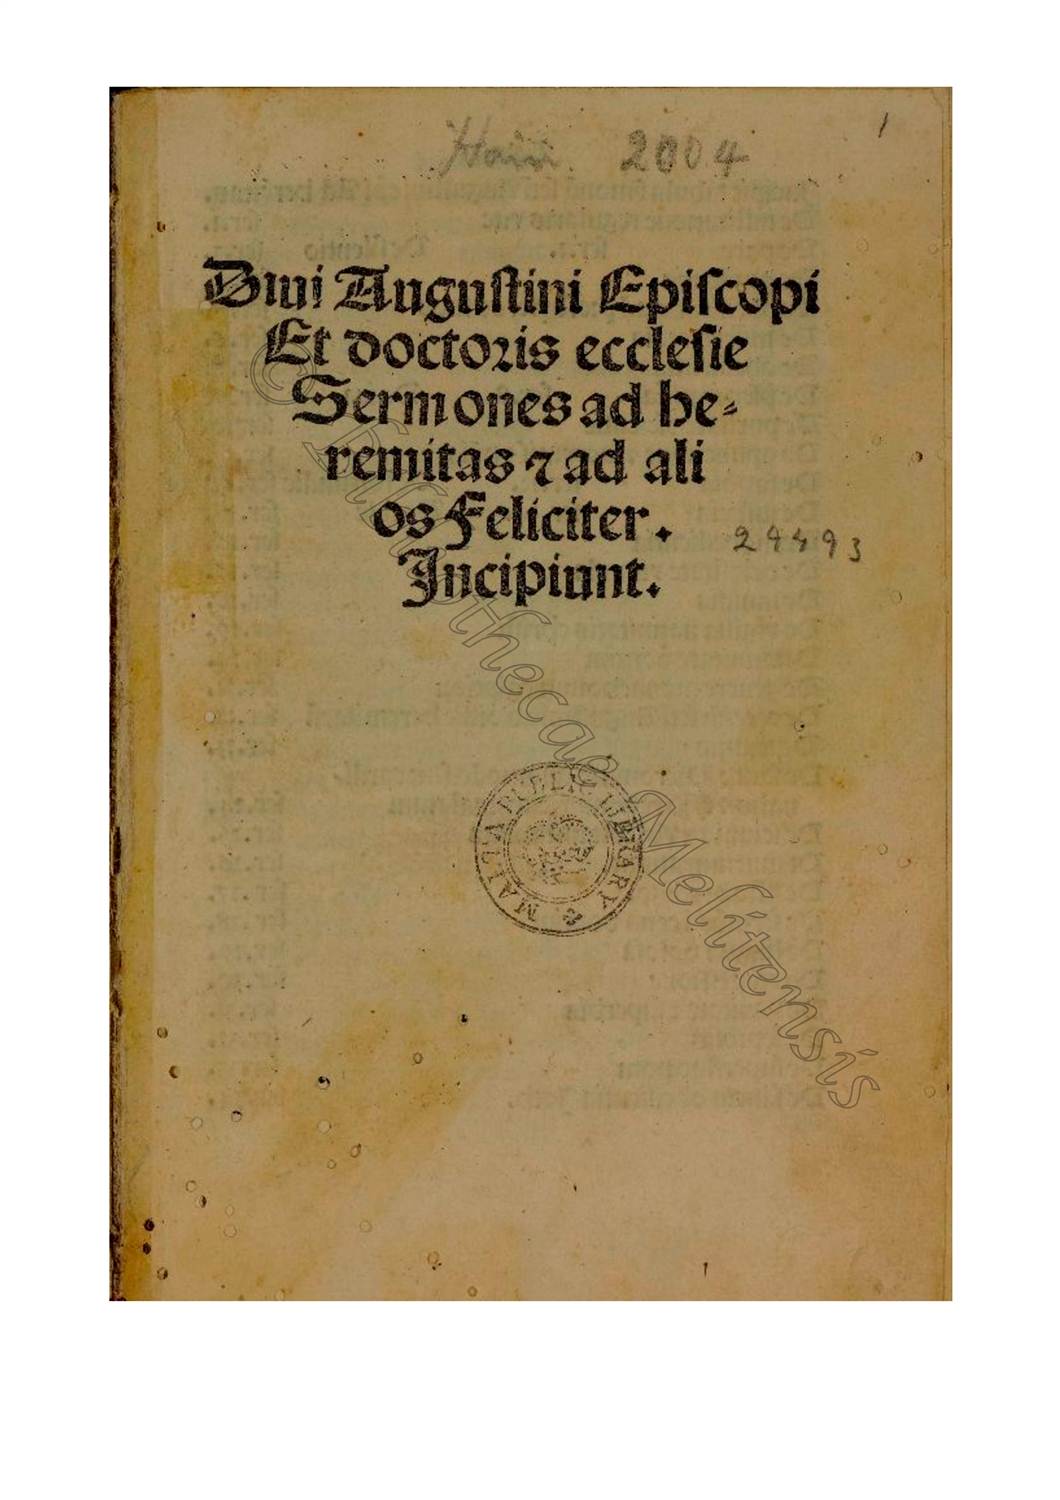 Hain. 2004
1
Diui Auguſtini Epiſcopi
Et doctoꝛis eccleſie
Sermones ad he⸗
remitas ⁊ ad ali
os Feliciter.
24493
Incipiunt.
MALTA PUBLIC LIBRARY
© Bibliothecae Melitensis